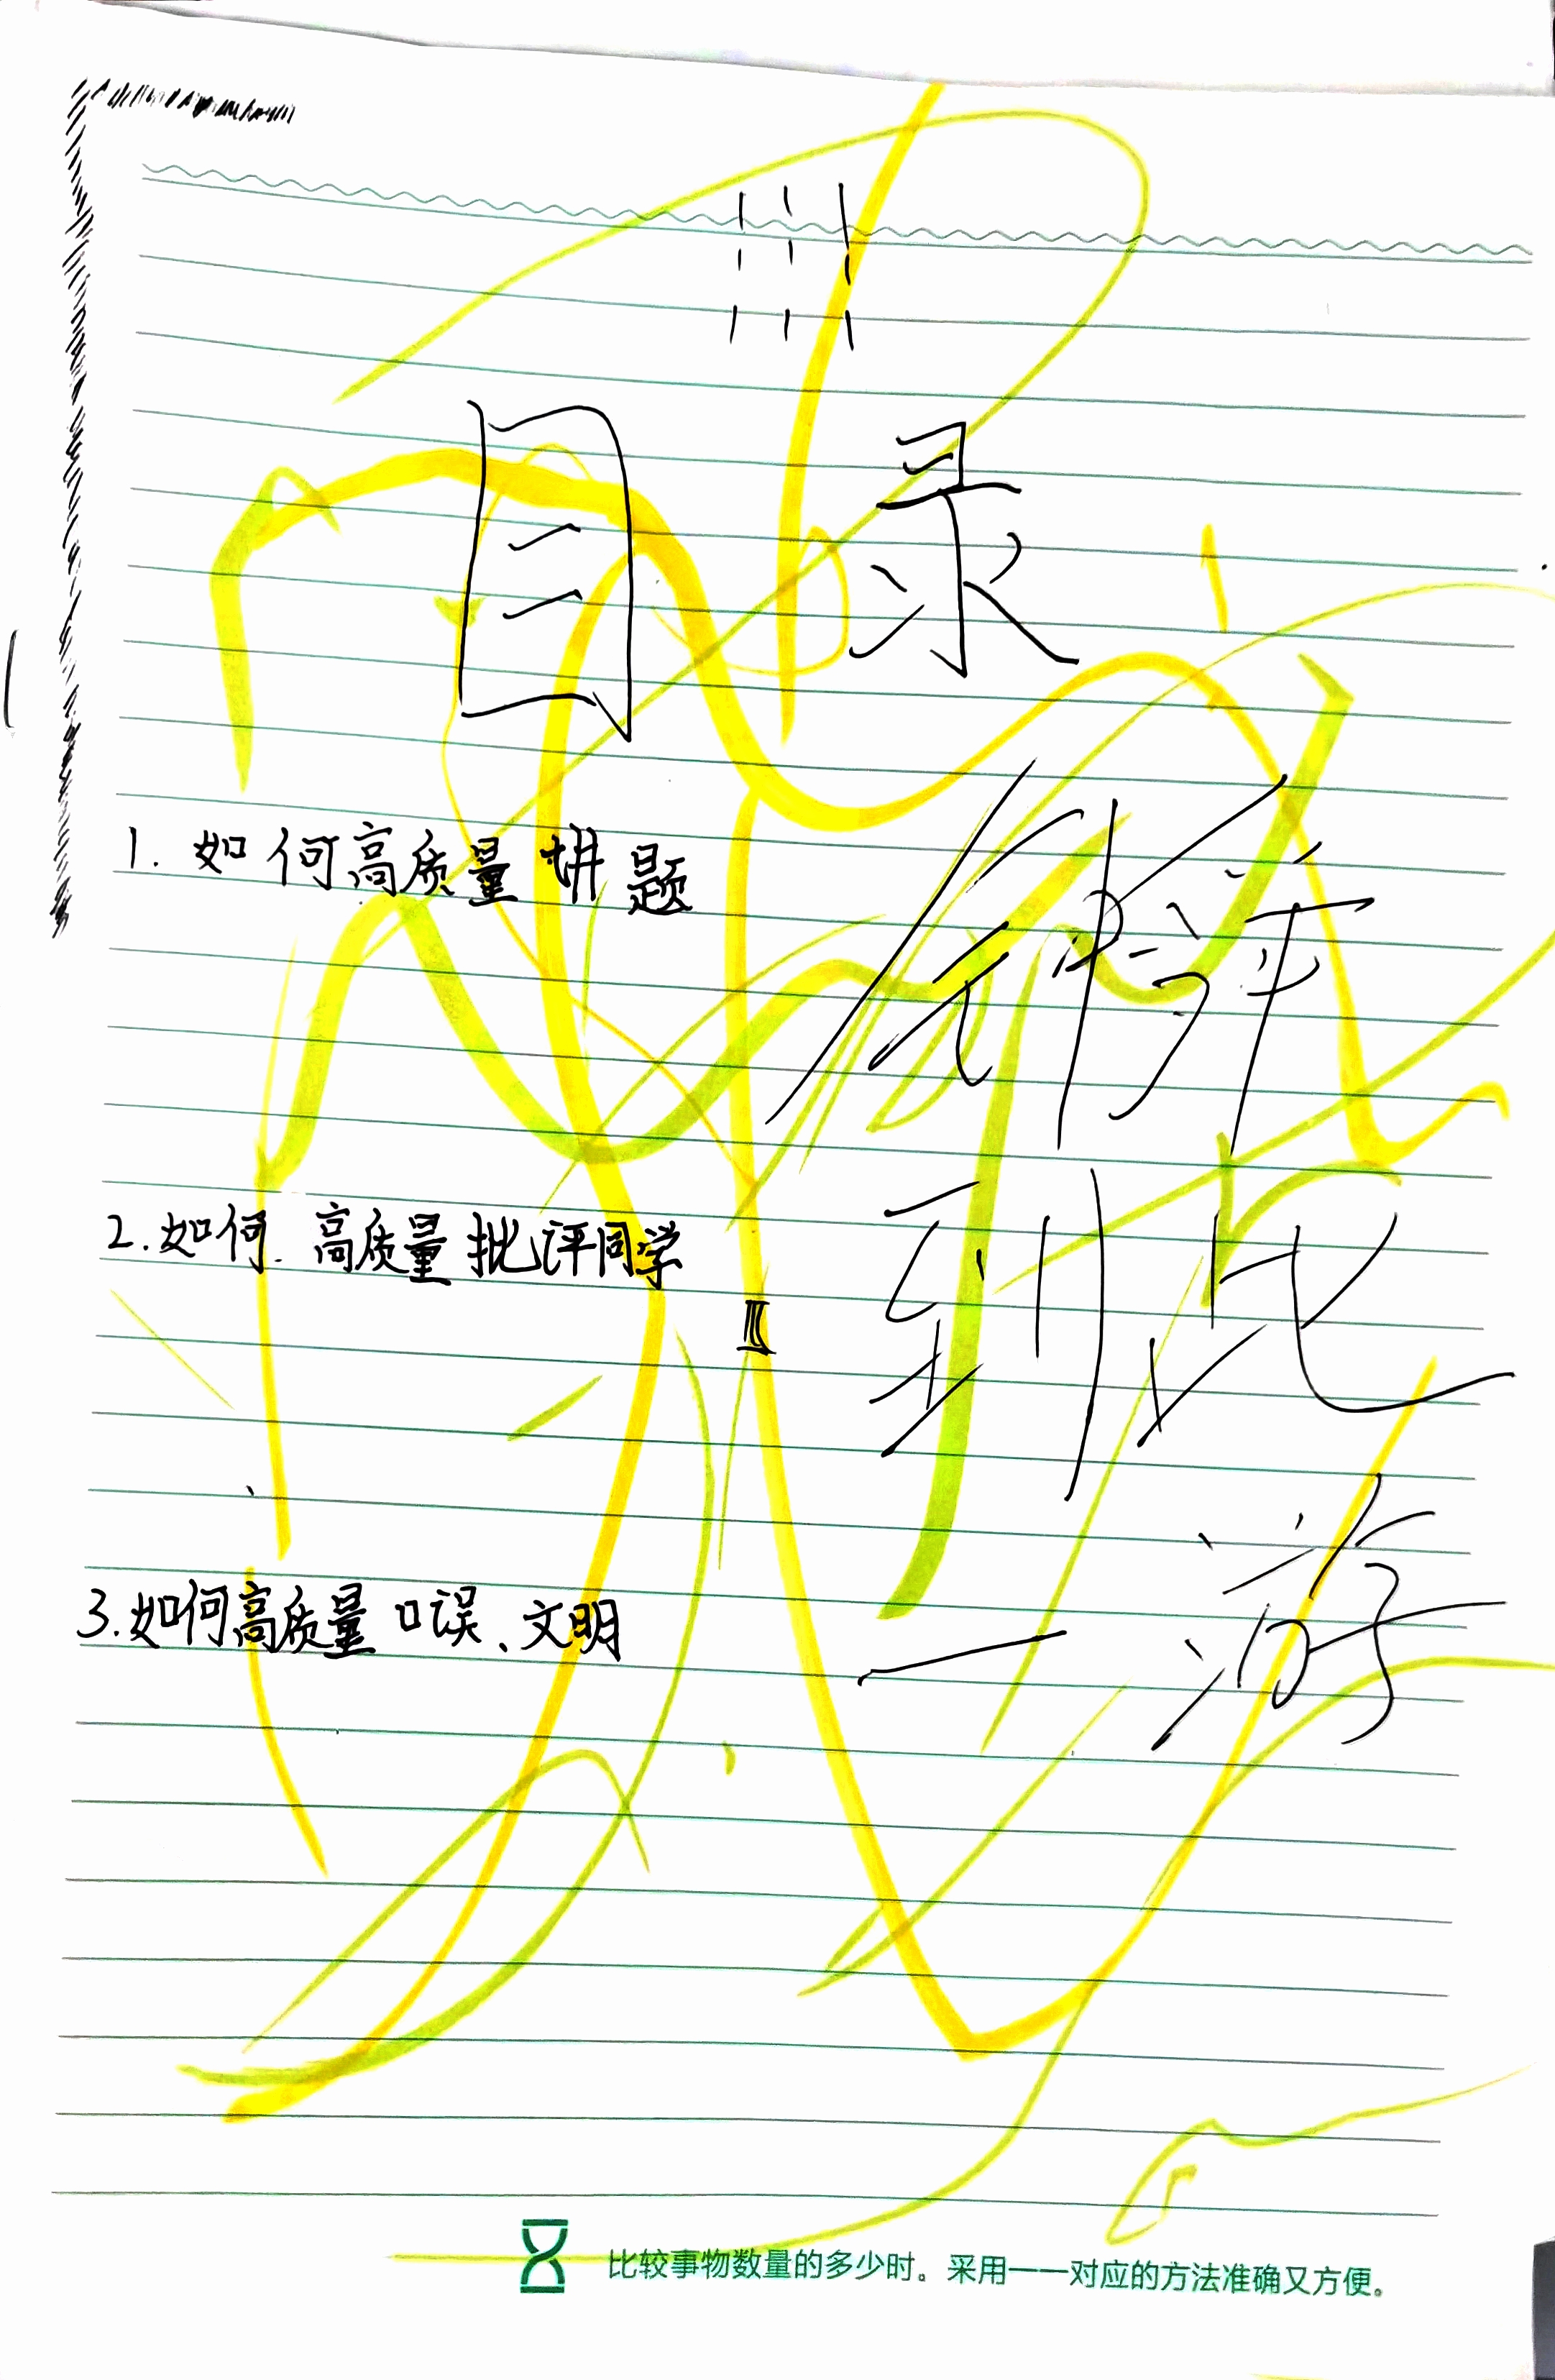 目录
1. 如何高质量讲题
2. 如何. 高质量批评同学
3. 如何高质量口误、文明
到此
一游
比较事物数量的多少时。采用一一对应的方法准确又方便。